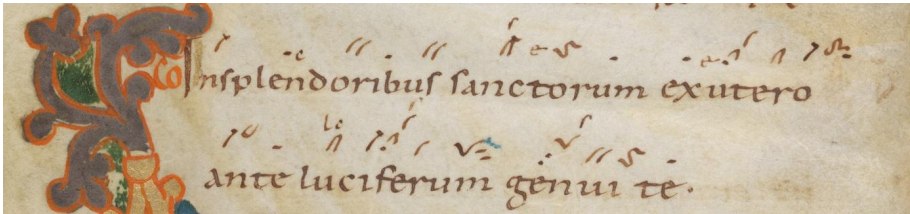 Co In splendoribus sanctorum ex utero
ante luciferum genui te.